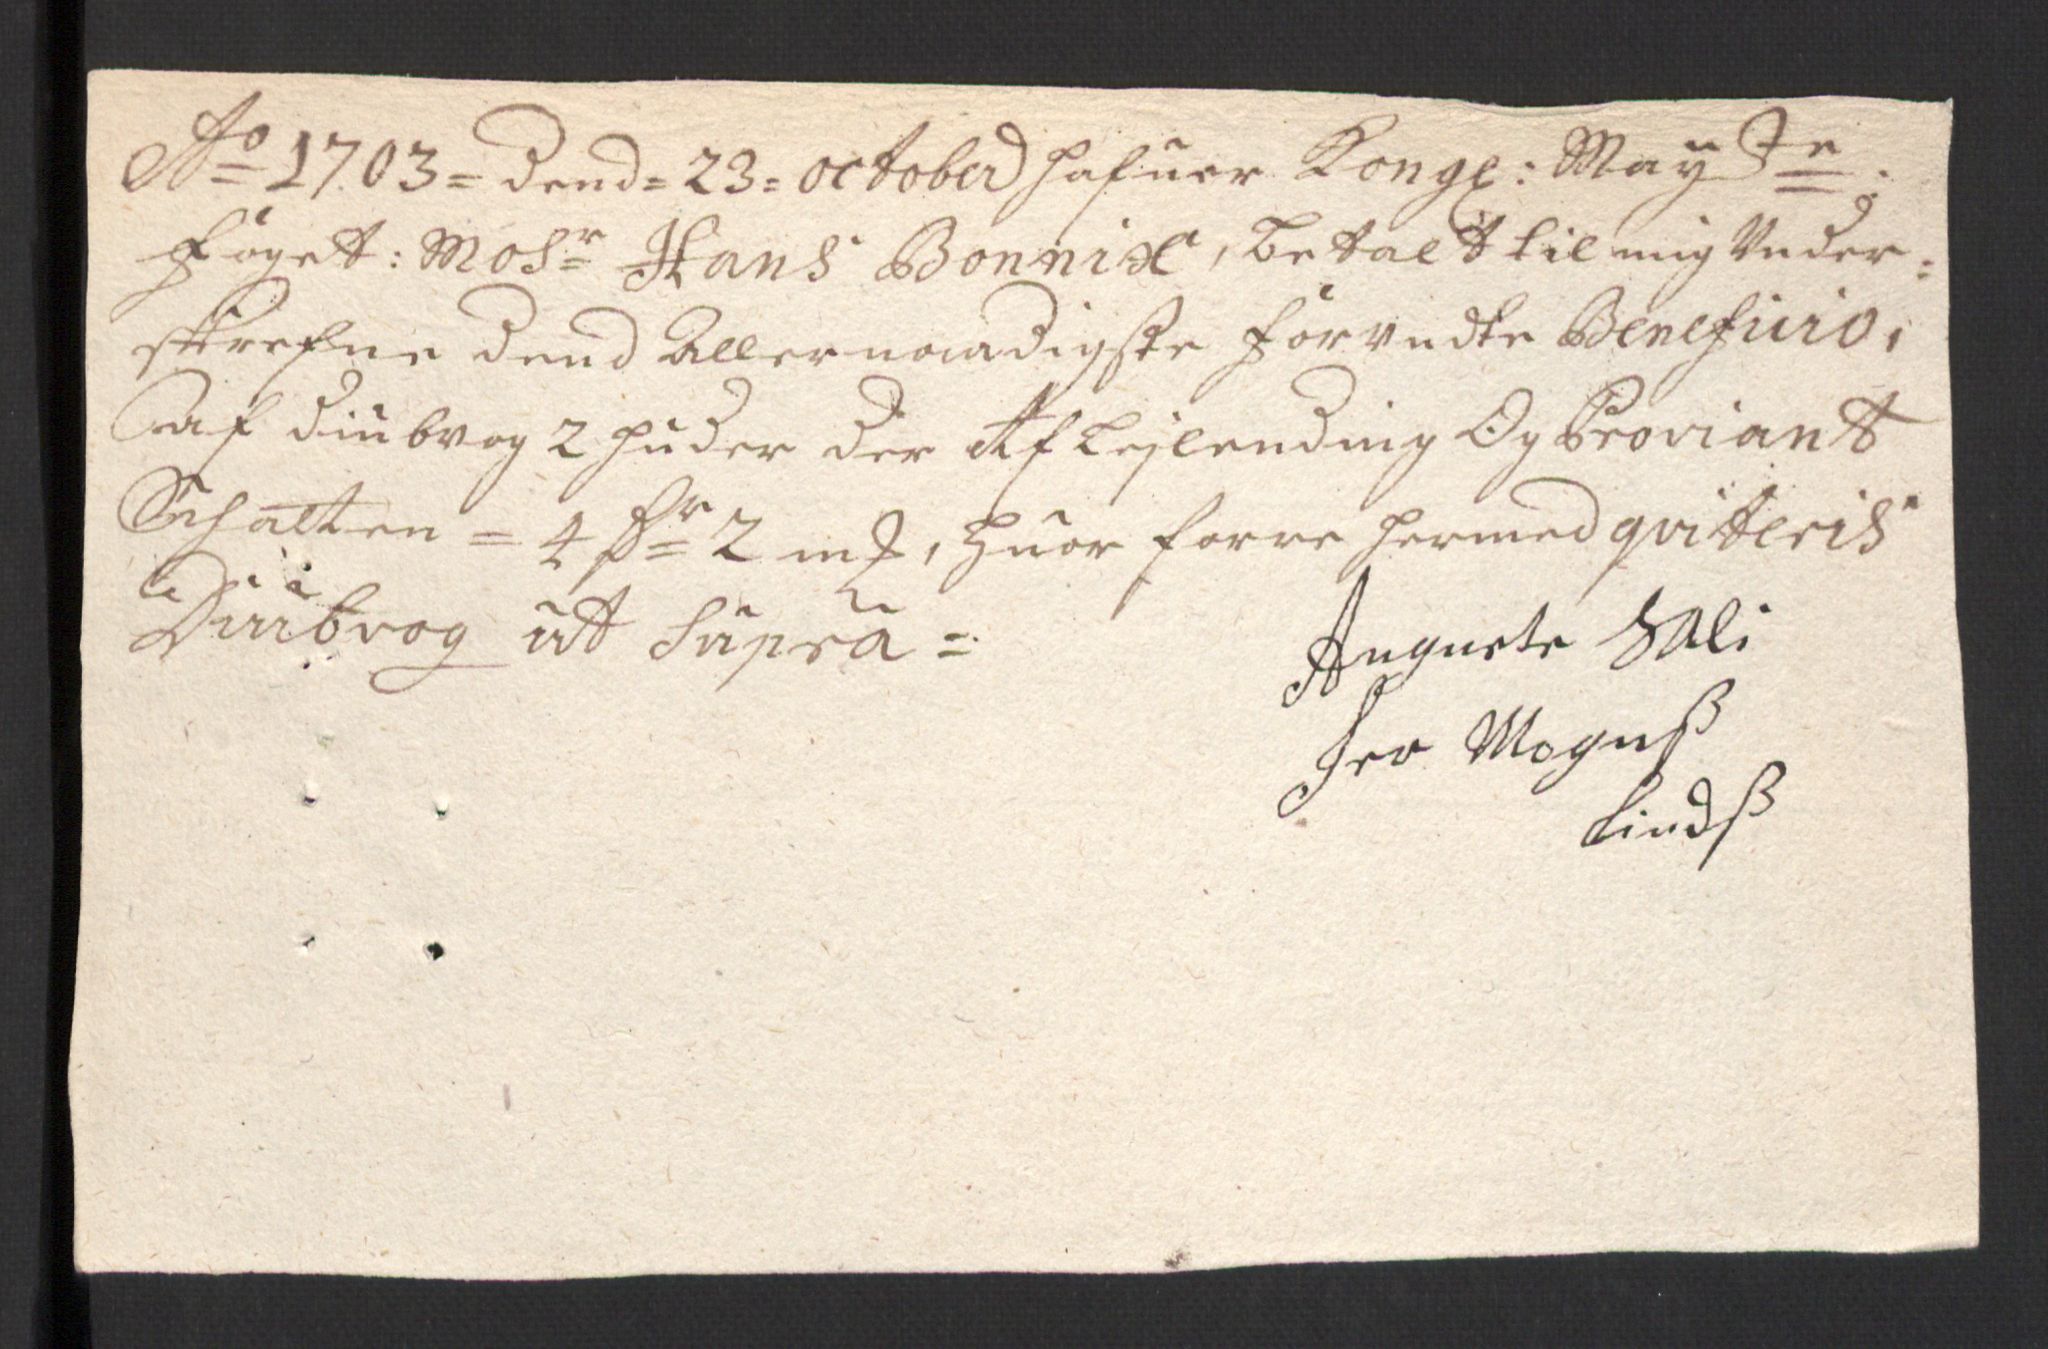 Ao 1703 = dend = 23 = october hafuer Kongl: Mayst:e
foget: Mosr Hans Bonnix, betalt til mig Vnder=
skrefne dend Allernaadigste forundte Beneficio,
af diubvog 2 huder der Af Leylending Og Proviant
Schatten = 4 sr 2 mk, Huor forre hermed qviteris
Diubvog ut supra =
Augnete Sali
Her Mognß
Lindß